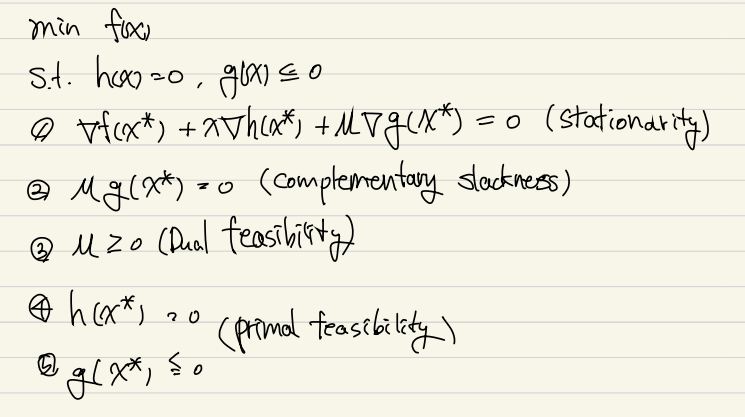 min f(x)
s.t. h(x)=0, g(x) ≤ 0
① ∇f(x*) + λ∇h(x*) + μ∇g(x*) = 0 (Stationarity)
② μg(x*) = 0 (complementary slackness)
③ μ ≥ 0 (Dual feasibility)
④ h(x*) = 0 (primal feasibility)
⑤ g(x*) ≤ 0